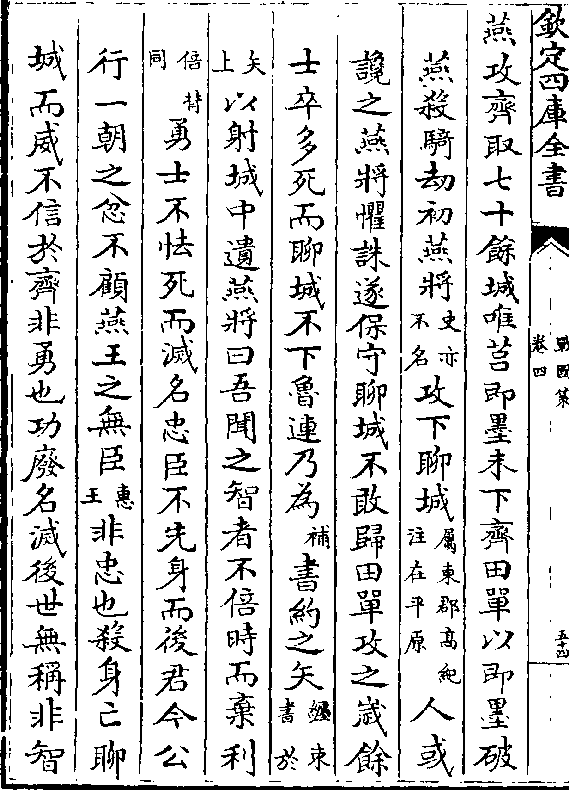 欽定四庫全書
戰國策
卷四
五十四
燕攻齊取七十餘城唯莒即墨未下齊田單以即墨破
燕殺騎劫初燕將史亦不名攻下聊城屬東郡高紀注在平原人或
讒之燕將懼誅遂保守聊城不敢歸田單攻之歲餘
士卒多死而聊城不下魯連乃為補書約之矢纏束書於
矢上以射城中遺燕將曰吾聞之智者不倍時而棄利
倍同勇士不怯死而滅名忠臣不先身而後君今公
行一朝之忿不顧燕王之無臣惠王非忠也殺身亡聊
城而威不信於齊非勇也功廢名滅後世無稱非智